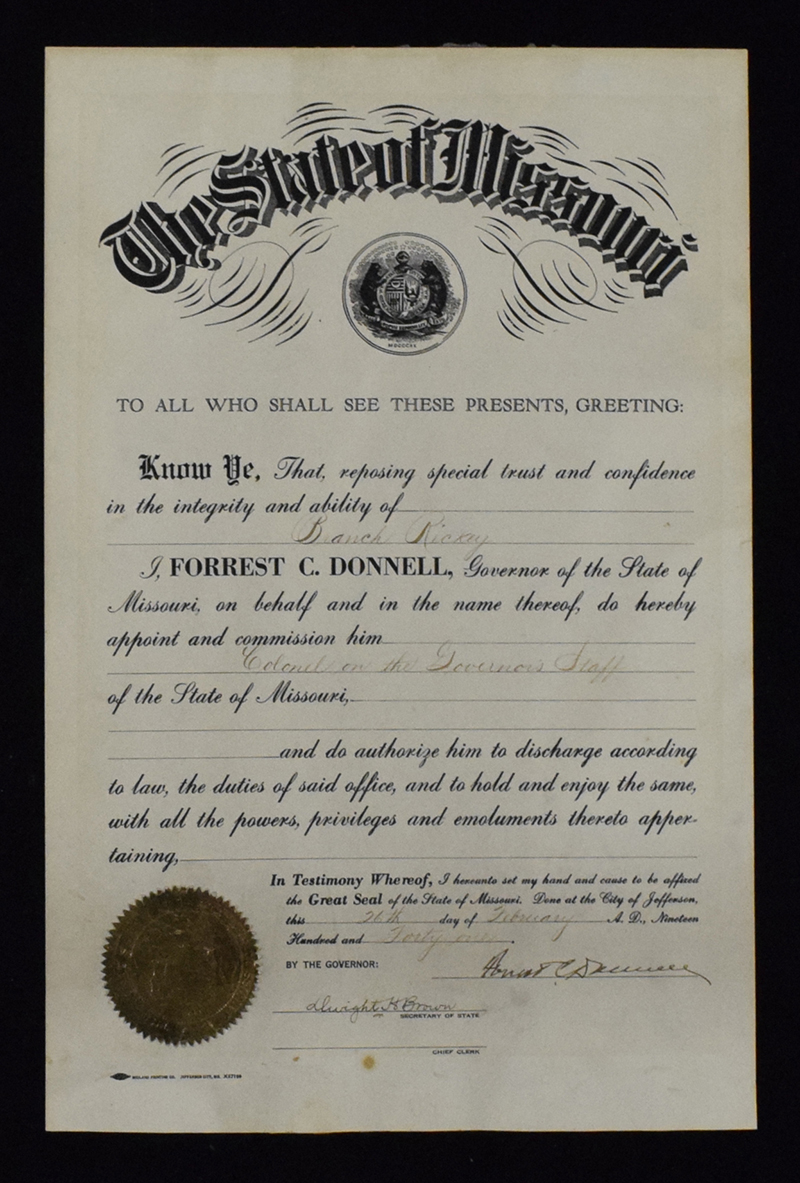 The State of Missouri
MDCCCXX
TO ALL WHO SHALL SEE THESE PRESENTS, GREETING:
Know Ye, That, reposing special trust and confidence
in the integrity and ability of
Branch Rickey
I, FORREST C. DONNELL, Governor of the State of
Missouri, on behalf and in the name thereof, do hereby
appoint and commission him
Colonel on the Governor's Staff
of the State of Missouri,
and do authorize him to discharge according
to law, the duties of said office, and to hold and enjoy the same,
with all the powers, privileges and emoluments thereto apper-
taining,
In Testimony Whereof, I hereunto set my hand and cause to be affixed
the Great Seal of the State of Missouri. Done at the City of Jefferson,
this 26th day of February A. D., Nineteen
Hundred and Forty one.
BY THE GOVERNOR: Forrest C. Donnell
Dwight H. Brown
SECRETARY OF STATE
CHIEF CLERK
MIDLAND PRINTING CO. JEFFERSON CITY, MO.